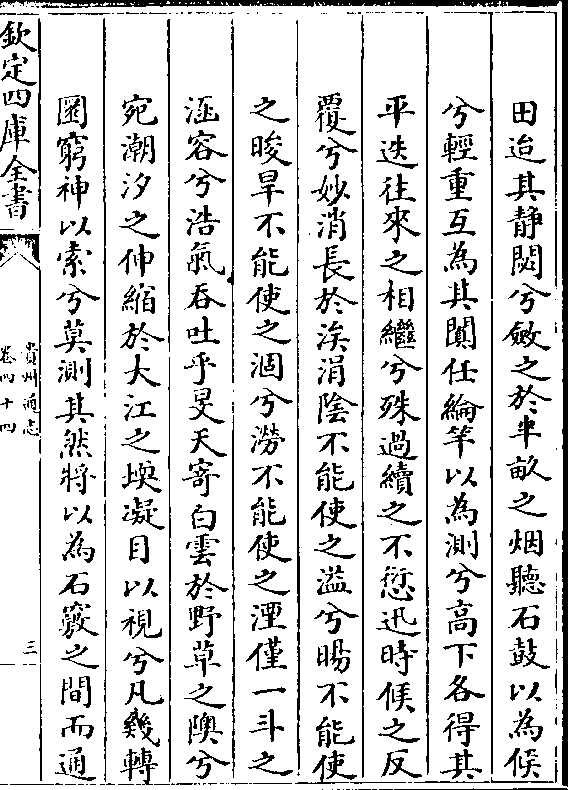 田迨其静闋兮斂之於半畝之烟聽石鼓以為候
兮輕重互為其闐任綸竿以為測兮高下各得其
平迭往來之相繼兮殊過續之不愆迅時候之反
覆兮妙消長於涘涓陰不能使之溢兮暘不能使
之晙旱不能使之涸兮澇不能使之湮僅一斗之
涵容兮浩氣吞吐乎旻天寄白雲於野草之隩兮
宛潮汐之伸縮於大江之堧凝目以視兮凡幾轉
圜窮神以索兮莫測其然將以為石竅之間而通
欽定四庫全書
貴州通志
卷四十四
三